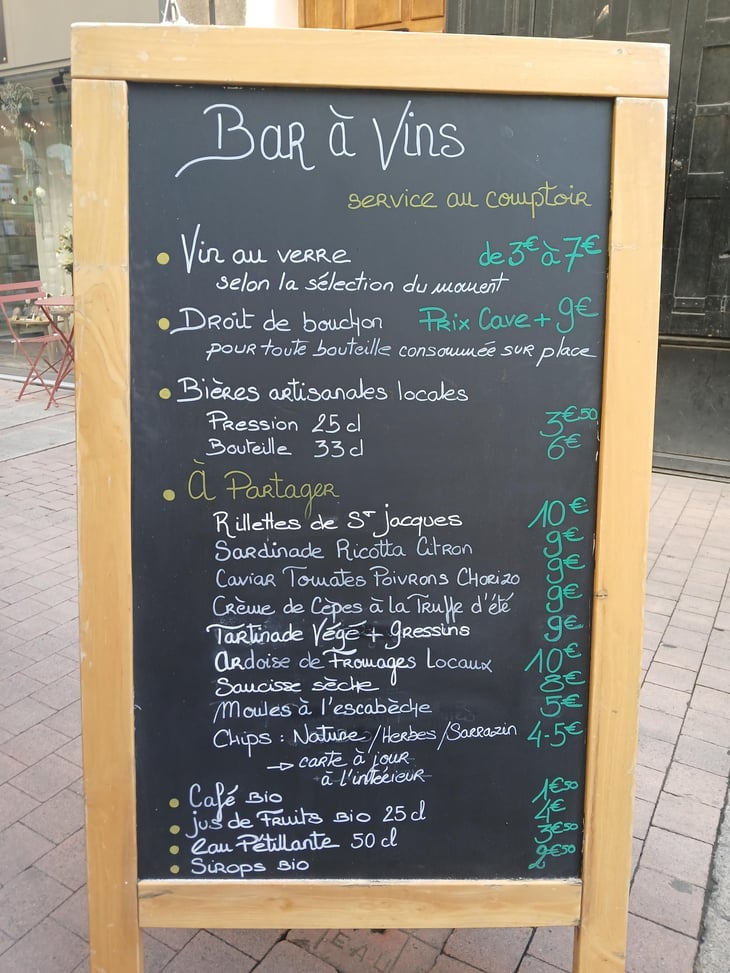 Bar à Vins
service au comptoir
• Vin au verre de 3€ à 7€
selon la sélection du moment
• Droit de bouchon Prix Cave + 9€
pour toute bouteille consommée sur place
• Bières artisanales locales
Pression 25 cl 3€50
Bouteille 33 cl 6€
• À Partager
Rillettes de St Jacques 10€
Sardinade Ricotta Citron 9€
Caviar Tomates Poivrons Chorizo 9€
Crème de Cèpes à la Truffe d'été 9€
Tartinade Végé + Gressins 9€
Ardoise de Fromages Locaux 10€
Saucisse sèche 8€
Moules à l'escabèche 5€
Chips : Nature/Herbes/Sarrazin 4-5€
→ carte à jour
à l'intérieur
• Café Bio 1€50
• Jus de Fruits Bio 25 cl 4€
• eau Pétillante 50 cl 3€50
• Sirops Bio 2€50